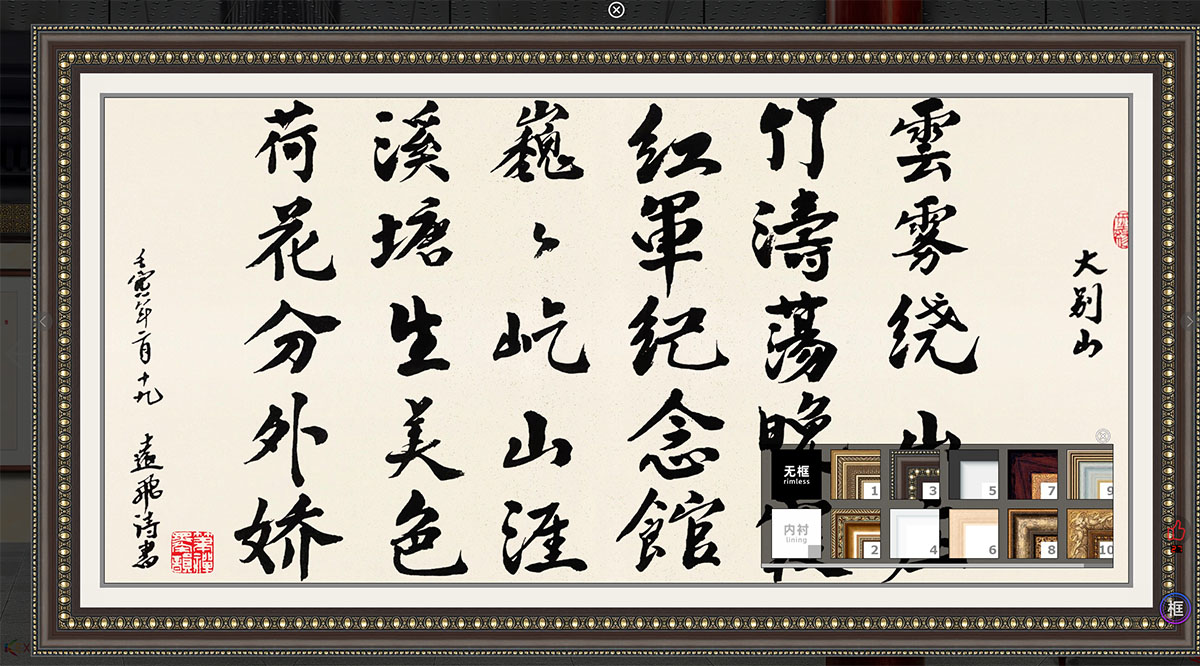 大别山
雲雾绕山
竹濤蕩晚
红軍纪念館
巍々屹山涯
溪塘生美色
荷花分外娇
壬寅年二月十九 遠飛诗書
无框
rimless
1 3 5 7 9
内衬
lining
2 4 6 8 10
框